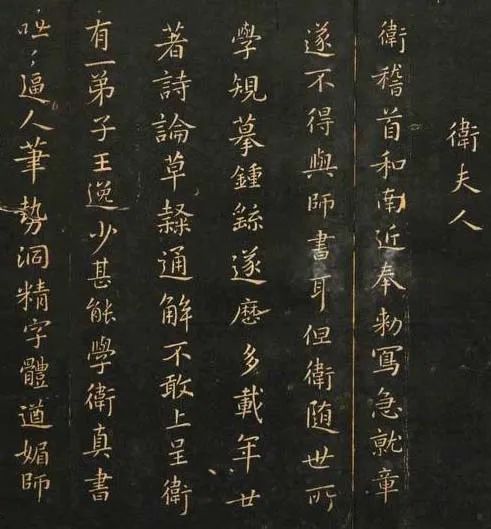 衛夫人
衛稽首和南近奉勅寫急就章
遂不得與師書耳但衛随世所
學規摹鍾繇遂歷多載年廿
著詩論草隸通解不敢上呈衛
有一弟子王逸少甚能學衛真書
咄〻逼人筆勢洞精字體遒媚師